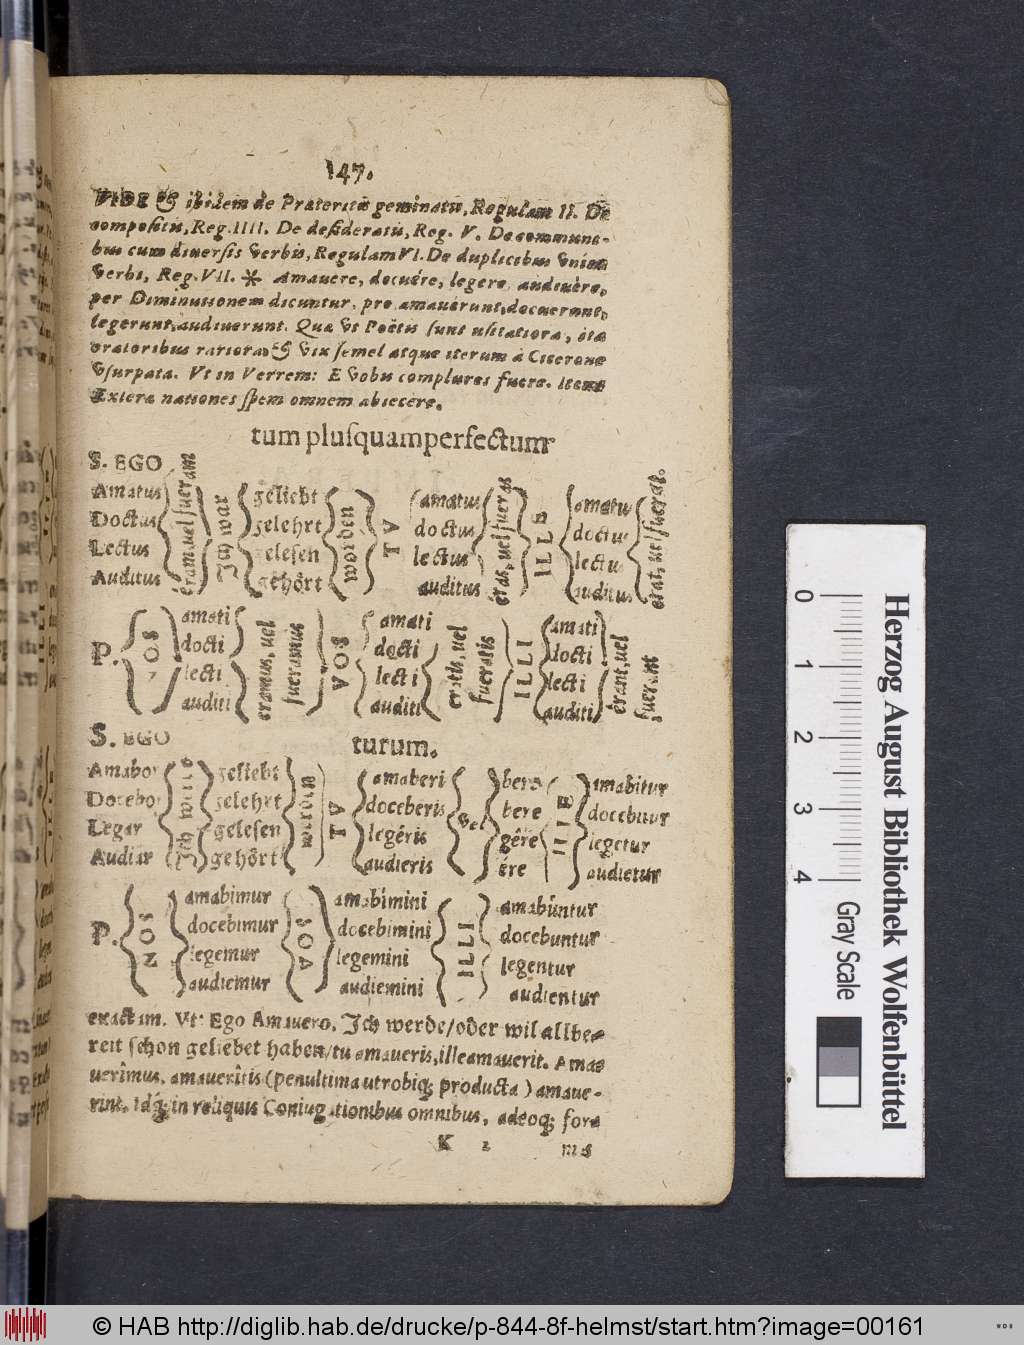 147.
VIDE & ibidem de Præteritis geminatis, Regulam II. De
compositis, Reg. IIII. De desideratis, Reg. V. De communi-
bus cum diuersis verbis, Regulam VI. De duplicibus vnius
verbi, Reg. VII. * Amauere, docuére, legere, audiuêre,
per Diminutionem dicuntur, pro amauérunt, docuerunt,
legerunt, audiuerunt. Quæ vt Poëtis sunt usitatiora, ita
oratoribus rariora, & vix semel atque iterum à Cicerone
vsurpata. Vt in Verrem: E vobis complures fuere. Item
Exteræ nationes spem omnem abiecere.
tum plusquamperfectum
S. EGO
Amatus
Doctus
Lectus
Auditus
éram, uel fueram
Ich war
geliebt
gelehrt
gelesen
gehört
worden
TV
amatus
doctus
lectus
auditus
éras, uel fueras
ILLE
amatu
doctu
lectu
auditus
erat, uel fuerat.
P.
OS
amati
docti
lecti
auditi
eramus, uel
fueramus
VOS
amati
docti
lecti
auditi
eratis, uel
fueratis
ILLI
amati
docti
lecti
auditi
érant, uel
fuerant
S. EGO
turum.
Amabor
Docebor
Legar
Audiar
Ich
geliebt
gelehrt
gelesen
gehört
TV
amaberi
doceberis
legéris
audieris
vel
bere
bere
gêre
ére
ILLE
amabitur
docebitur
legetur
audietur
P.
NOS
amabimur
docebimur
legemur
audiemur
VOS
amabimini
docebimini
legemini
audiemini
ILLI
amabúntur
docebuntur
legentur
audientur
exactum. Vt: Ego Amauero, Ich werde/oder wil allbe-
reit schon geliebet haben/tu amaueris, ille amauerit. Ama-
uerîmus, amauerîtis (penultima utrobiq; producta) amaue-
rint. Idq; in reliquis Coniugationibus omnibus, adeoq; for-
K 2
mis
0
1
2
3
4
Gray Scale
Herzog August Bibliothek Wolfenbüttel
© HAB http://diglib.hab.de/drucke/p-844-8f-helmst/start.htm?image=00161
WDB